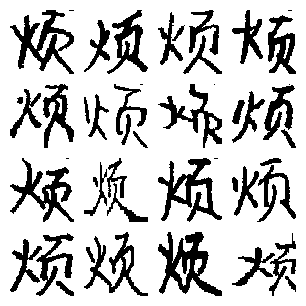 烦烦烦烦
烦烦烦烦
烦烦烦烦
烦烦烦烦